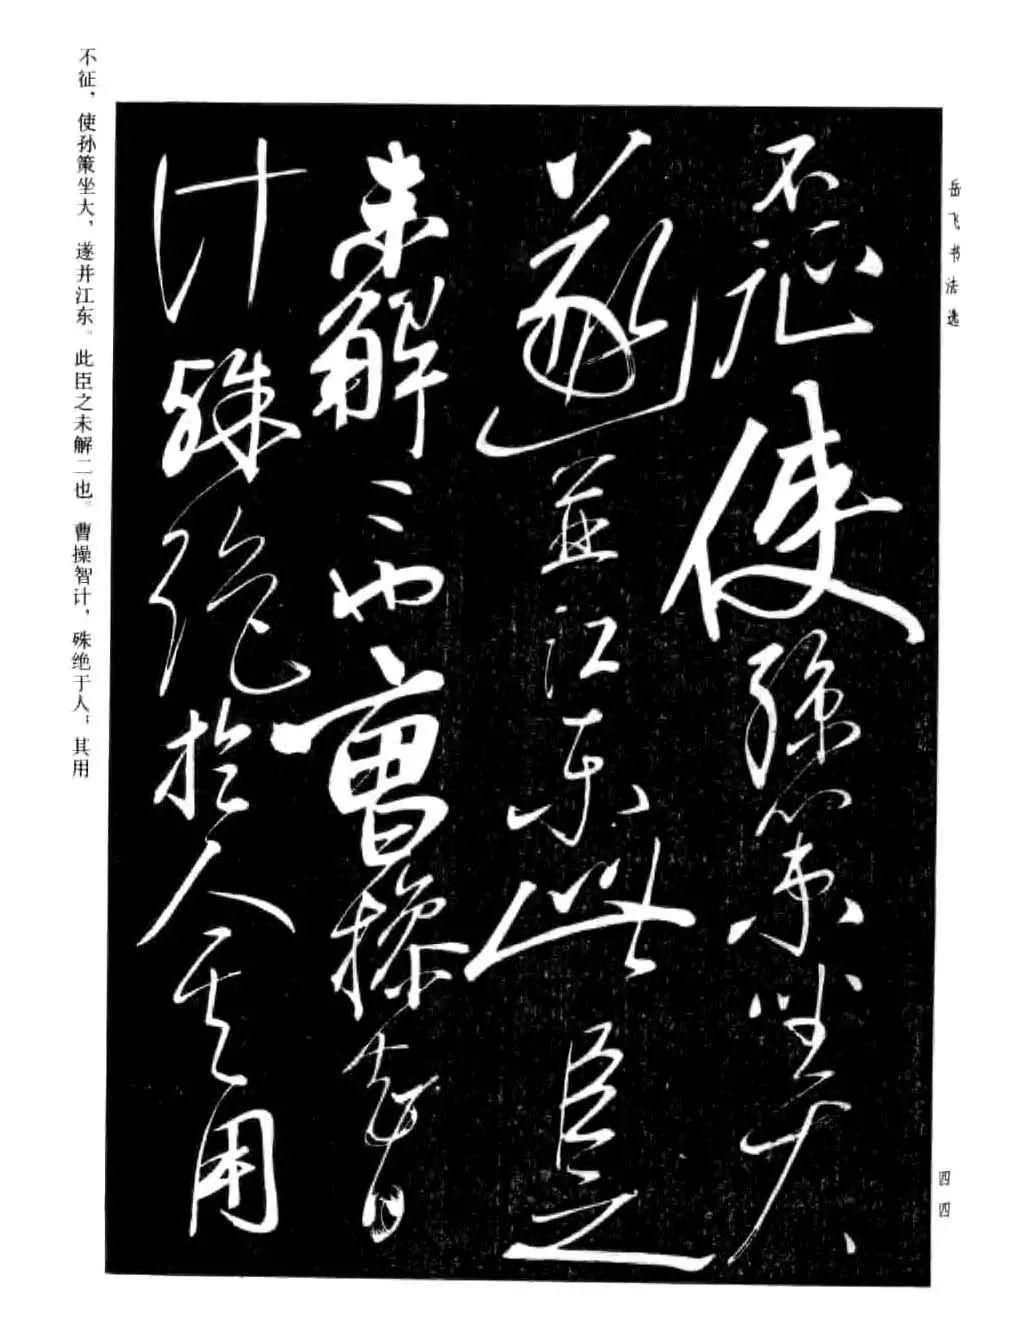 岳飞书法选
不征使孙策坐大
遂並江东此臣之
未解二也曹操智
计殊绝於人其用
四四
不征，使孙策坐大，遂并江东。此臣之未解二也。曹操智计，殊绝于人；其用